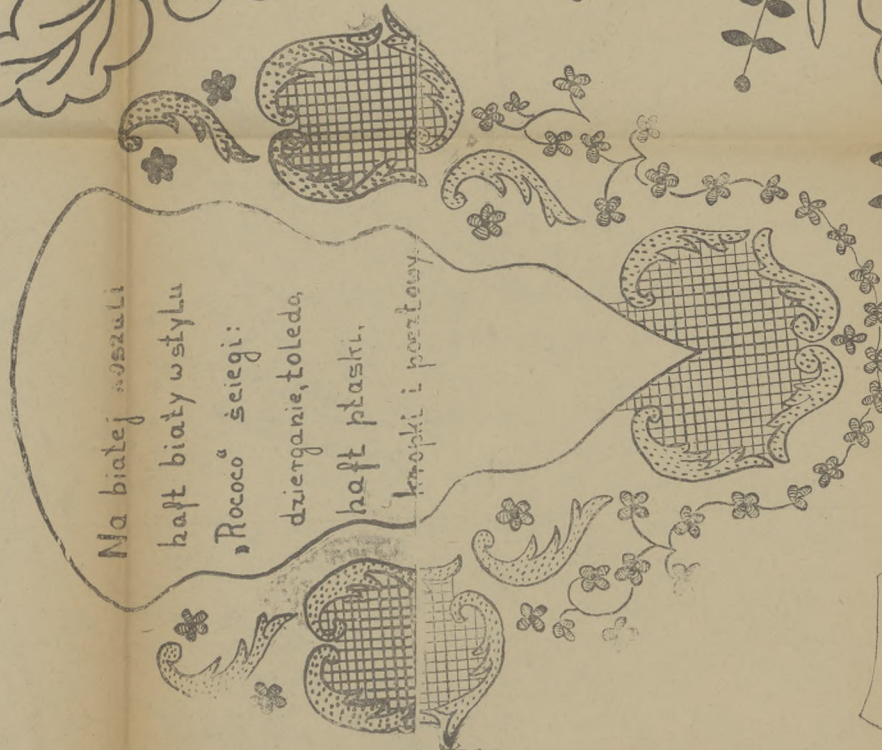 Na białej koszuli
haft biały w stylu
„Rococo“ ściegi:
dzierganie, toledo,
haft płaski,
kropki i